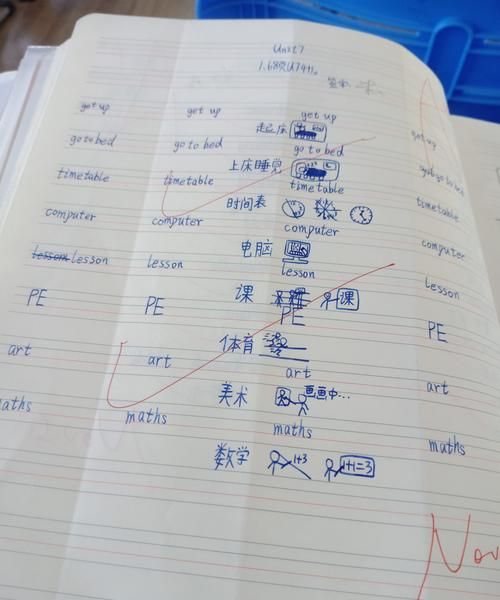 Unit7
get up get up get up get up
起床
go to bed go to bed go to bed
上床睡觉
timetable timetable timetable timetable
时间表
computer computer computer computer
电脑
lesson lesson lesson lesson lesson
课 课
PE PE PE PE
体育
art art art art
美术 画画中...
maths maths maths maths
数学 1+3 1+1=3